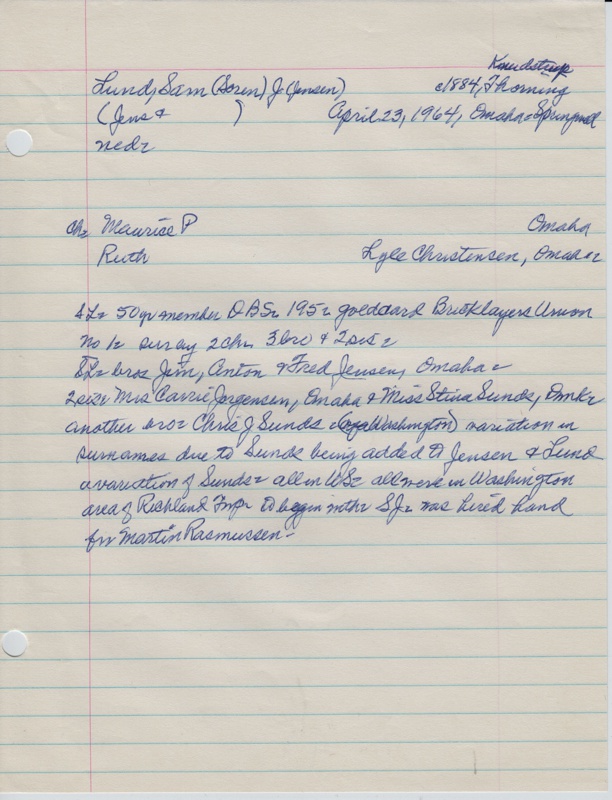 Knudstrup
Lund, Sam (Soren) J (Jensen) c1884, Thorning
(Jens & ) April 23, 1964, Omaha= Springwell
ned=
ch= Maurice P Omaha
Ruth Lyle Christensen, Omaha=
SL= 50 yr member DBS= 195= Goddard Bricklayers Union
No 1= surv by 2 chn 3 bro & 2 sis=
SL= bros Jim, Anton & Fred Jensen, Omaha=
2 sis= Mrs Carrie Jorgensen, Omaha & Miss Stina Sunds, Omk=
another bro= Chris J Sunds = Washington) variation in
surnames due to Sunds being added to Jensen & Lund
a variation of Sunds= all in US= all were in Washington
area of Richland Twp= to begin with= SJ= was hired hand
for Martin Rasmussen=